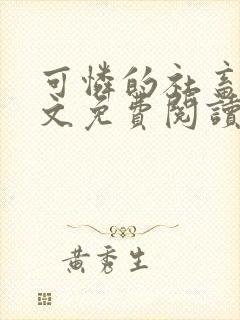 可憐的社畜
文免費閱讀
黃秀生